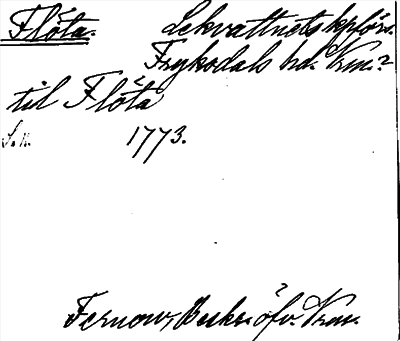 Flåta. Lekvattnets kpförs.
Frykedals hd. Vrm.?
til Flåta
S. H. 1773.
Fernow, Beskr. öfv. Vrm.